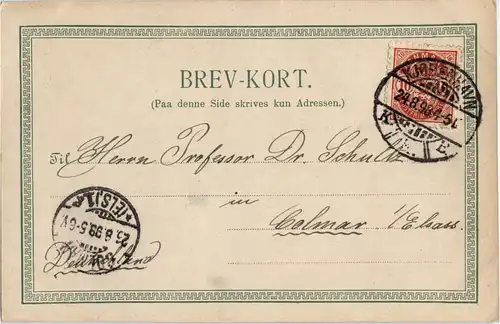 BREV-KORT.
(Paa denne Side skrives kun Adressen.)
KJØBENHAVN
24.8.98.4-5E.
K. B.
Til Herrn Professor Dr. Schultz
in
Colmar i/Elsass.
(ELS)
25.8.98.5-6N
Deutschland